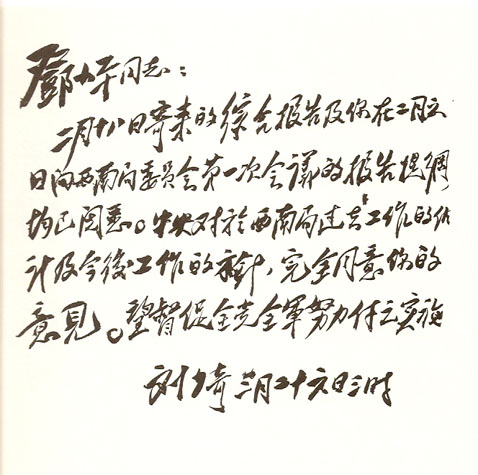 鄧小平同志：
二月十八日寄来的綜合报告及你在二月六
日向西南局委員会第一次会議的报告提綱
均已閱悉。中央对於西南局过去工作的估
计及今後工作的方針，完全同意你的
意見。望督促全党全軍努力付之实施
刘少奇 三月二十六日三时